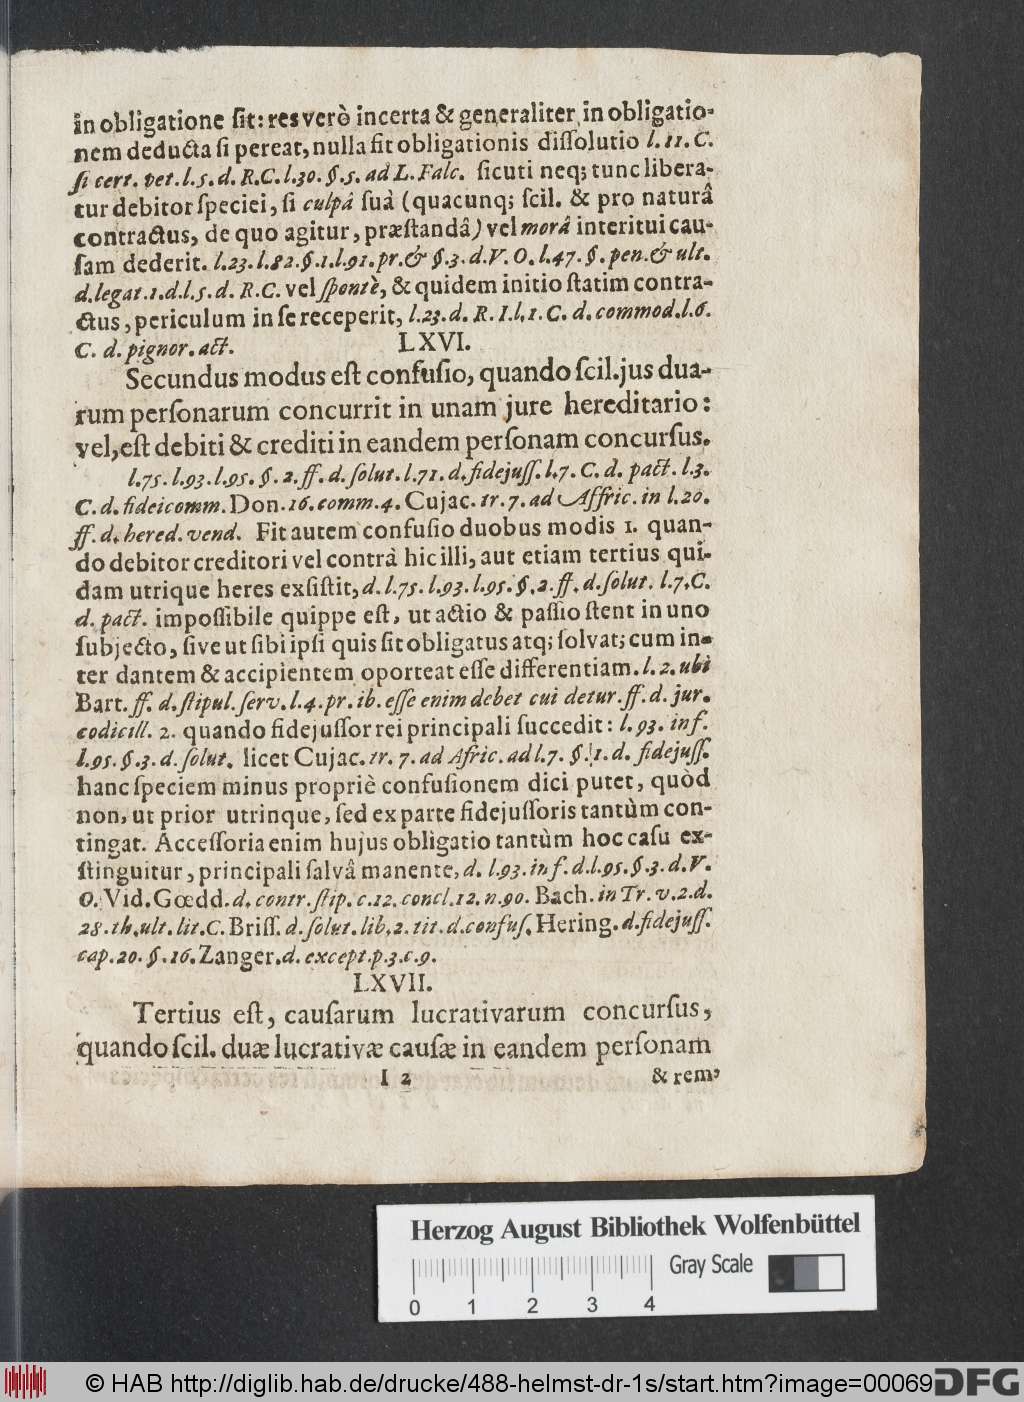 in obligatione ſit: res verò incerta & generaliter in obligatio-
nem deducta ſi pereat, nulla fit obligationis diſſolutio l. 11. C.
ſi cert. pet. l. 5. d. R. C. l. 30. §. 5. ad L. Falc. ſicuti neq; tunc libera-
tur debitor ſpeciei, ſi culpâ ſuâ (quacunq; ſcil. & pro naturâ
contractus, de quo agitur, præſtandâ) vel morâ interitui cau-
ſam dederit. l. 23. l. 82. §. 1. l. 91. pr. & §. 3. d. V. O. l. 47. §. pen. & ult.
d. legat. 1. d. l. 5. d. R. C. vel ſpontè, & quidem initio ſtatim contra-
ctus, periculum in ſe receperit, l. 23. d. R. I. l. 1. C. d. commod. l. 6.
C. d. pignor. act.
LXVI.
Secundus modus eſt confuſio, quando ſcil. jus dua-
rum perſonarum concurrit in unam jure hereditario:
vel, eſt debiti & crediti in eandem perſonam concurſus.
l. 75. l. 93. l. 95. §. 2. ff. d. ſolut. l. 71. d. fidejuſſ. l. 7. C. d. pact. l. 3.
C. d. fideicomm. Don. 16. comm. 4. Cujac. tr. 7. ad Affric. in l. 20.
ff. d. hered. vend. Fit autem confuſio duobus modis 1. quan-
do debitor creditori vel contrà hic illi, aut etiam tertius qui-
dam utrique heres exſiſtit, d. l. 75. l. 93. l. 95. §. 2. ff. d. ſolut. l. 7. C.
d. pact. impoſſibile quippe eſt, ut actio & paſſio ſtent in uno
ſubjecto, ſive ut ſibi ipſi quis ſit obligatus atq; ſolvat; cum in-
ter dantem & accipientem oporteat eſſe differentiam. l. 2. ubi
Bart. ff. d. ſtipul. ſerv. l. 4. pr. ib. eſſe enim debet cui detur. ff. d. jur.
codicill. 2. quando fidejuſſor rei principali ſuccedit: l. 93. in f.
l. 95. §. 3. d. ſolut. licet Cujac. tr. 7. ad Afric. ad l. 7. §. 1. d. fidejuſſ.
hanc ſpeciem minus propriè confuſionem dici putet, quòd
non, ut prior utrinque, ſed ex parte fidejuſſoris tantùm con-
tingat. Acceſſoria enim hujus obligatio tantùm hoc caſu ex-
ſtinguitur, principali ſalvâ manente, d. l. 93. in f. d. l. 95. §. 3. d. V.
O. Vid. Gœdd. d. contr. ſtip. c. 12. concl. 12. n. 90. Bach. in Tr. v. 2. d.
28. th. ult. lit. C. Briſſ. d. ſolut. lib. 2. tit. d. confuſ. Hering. d. fidejuſſ.
cap. 20. §. 16. Zanger. d. except. p. 3. c. 9.
LXVII.
Tertius eſt, cauſarum lucrativarum concurſus,
quando ſcil. duæ lucrativæ cauſæ in eandem perſonam
I 2
& rem,
Herzog August Bibliothek Wolfenbüttel
Gray Scale
0 1 2 3 4
© HAB http://diglib.hab.de/drucke/488-helmst-dr-1s/start.htm?image=00069
DFG